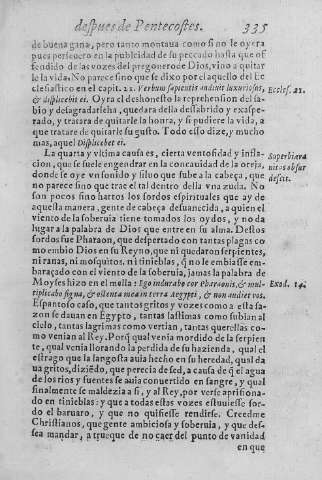 despues de Pentecostes. 335
de buena gana, pero tanto montaua como si no le oyera
pues perseuero en la publicidad de su peccado hasta que of
fendido de las vozes del pregonero de Dios, vino a quitar
le la vida. No parece sino que se dixo por el aquello del Ec
clesiastico en el capit. 21. Verbum sapientis audiuit luxuriosus, Eccles. 21.
& displicebit ei. Oyra el deshonesto la reprehension del sa-
bio y desagradarleha, quedara della desabrido y exaspe-
rado, y tratara de quitarle la honra, y si pudiere la vida, a
que tratare de quitarle su gusto. Todo esso dize, y mucho
mas, aquel Displicebit ei.
La quarta y vltima causa es, cierta ventosidad y infla-
cion, que se suele engendrar en la concauidad de la oreja, Superbiera
donde se oye vn sonido y siluo que sube a la cabeça, que nitos obsur
no parece sino que trae el tal dentro della vna zuda. No descit.
son pocos sino hartos los sordos espirituales que ay de
aquella manera, gente de cabeça desuanecida, a quien el
viento de la soberuia tiene tomados los oydos, y no da
lugar a la palabra de Dios que entre en su alma. Destos
sordos fue Pharaon, que despertado con tantas plagas co
mo embio Dios en su Reyno, que ni quedaron serpientes,
ni ranas, ni mosquitos, ni tinieblas, q̃ no le embiasse em-
baraçado con el viento de la soberuia, jamas la palabra de
Moyses hizo en el molla: Ego indurabo cor Pharaonis, & mul- Exod. 14.
tiplicabo signa, & ostenta mea in terra Aegypti, & non audiet vos.
Espantoso caso, que tantos gritos y vozes como a esta sa-
zon se dauan en Egypto, tantas lastimas como subian al
cielo, tantas lagrimas como vertian, tantas querellas co-
mo venian al Rey. Porq̃ qual venia mordido de la serpien
te, qual venia llorando la perdida de su hazienda, qual el
estrago que la langosta auia hecho en su heredad, qual da
ua gritos, diziẽdo, que perecia de sed, a causa de q̃ el agua
de los rios y fuentes se auia conuertido en sangre, y qual
finalmente se maldezia a si, y al Rey, por verse aprisiona-
do en tinieblas: y que a todas estas vozes estuuiesse sor-
do el baruaro, y que no quisiesse rendirse. Creedme
Christianos, que gente ambiciosa y soberuia, y que des-
sea mandar, a trueque de no caer del punto de vanidad
en que